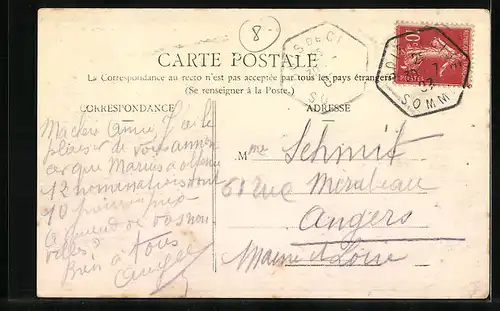 8
CARTE POSTALE
La Correspondance au recto n'est pas acceptée par tous les pays étrangers
(Se renseigner à la Poste.)
CORRESPONDANCE
ADRESSE
Ma chère Amie, J'ai le
plaisir de vous annon
cer que Marius a obtenu
12 nominations dont
10 premiers prix
A quand de vos nou
velles?
Bien à tous
Mme Schmit
61 rue Mirabeau
Angers
Maine & Loire
SOMME
10